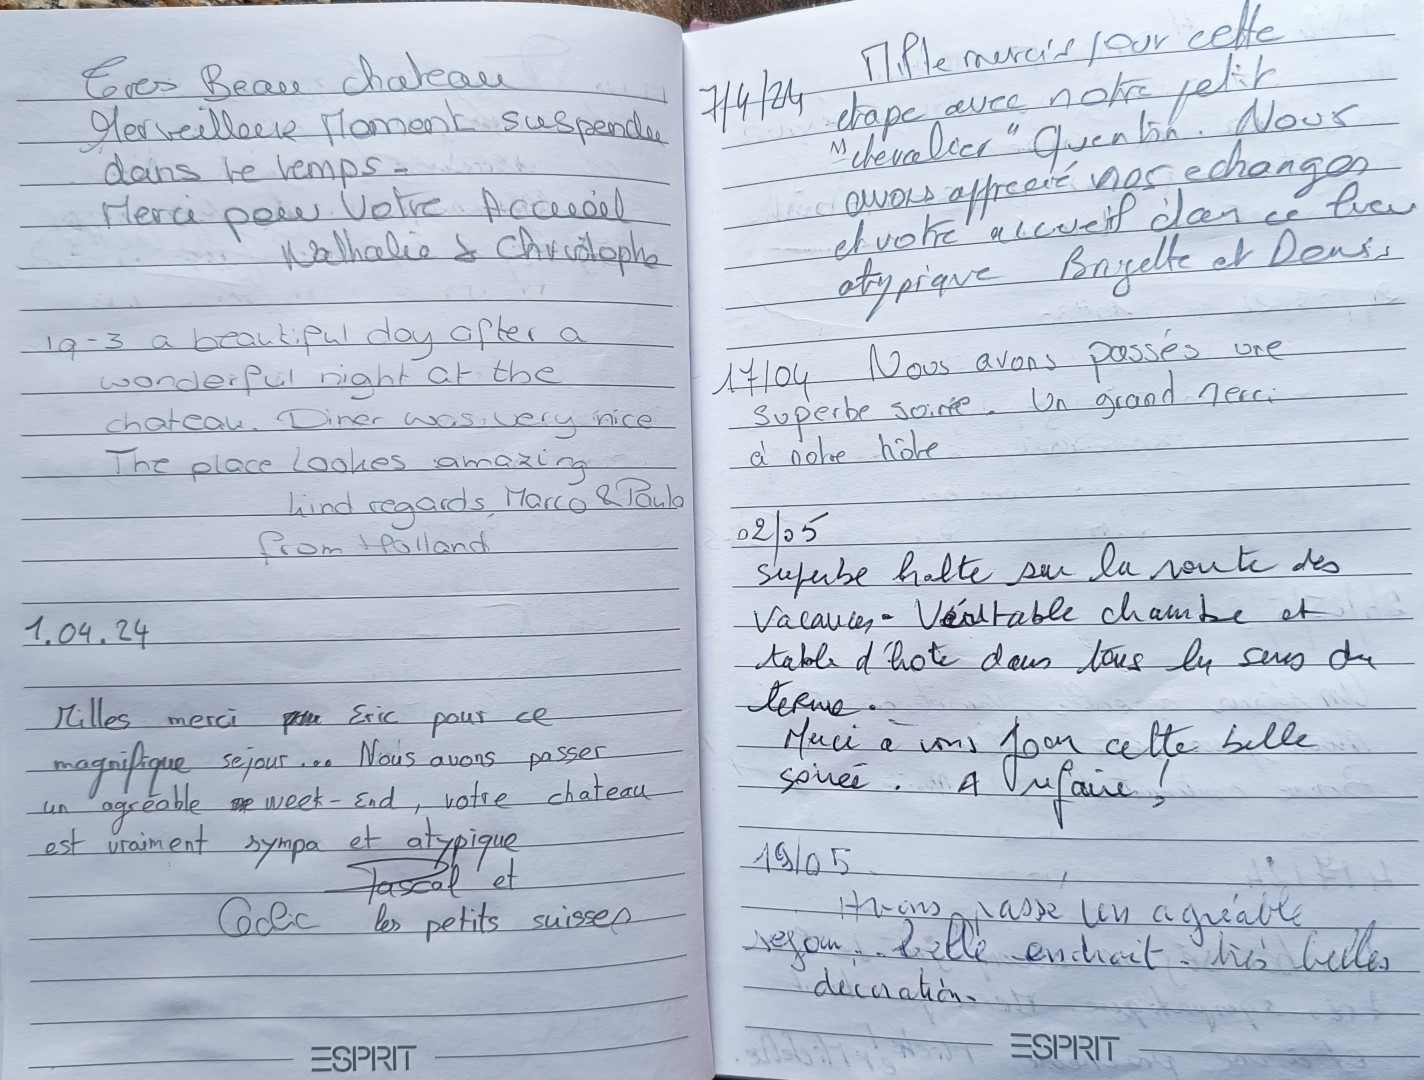 Tres Beau chateau
Merveilleux Moment suspendu
dans le temps -
Merci pour Votre Accueil
Nathalie & Christophe
19-3 a beautiful day after a
wonderful night at the
chateau. Diner was very nice
The place lookes amazing
kind regards, Marco & Paula
from Holland
1.04.24
Milles merci Eric pour ce
magnifique sejour... Nous avons passer
un agréable week-End, votre chateau
est vraiment sympa et atypique
Pascal et
les petits suisses
ESPRIT
7/4/24 Mille mercis pour cette
etape avec notre petit
"chevalier" Quentin. Nous
avons apprecié nos echanges
et votre accueil dans ce lieu
atypique Brigitte et Denis
17/04 Nous avons passés une
superbe soirée. Un grand merci
à notre hôte
02/05
superbe halte sur la route des
vacances - Véritable chambre et
table d'hote dans tous les sens du
terme.
Merci à vous pour cette belle
soirée. A refaire !
19/05
Avons passe un agréable
sejour.. belle endroit. très belles
decoration.
ESPRIT